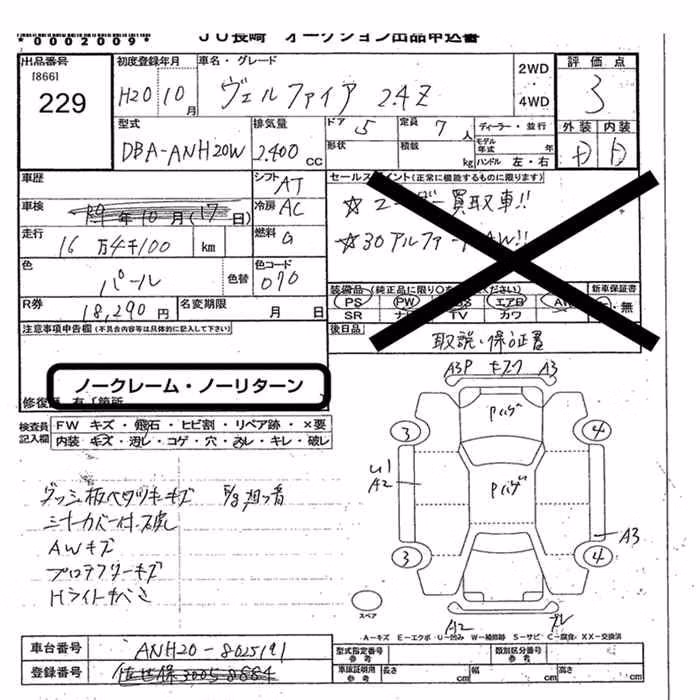 *0002009*
JU長崎 オークション出品申込書
出品番号
[866]
229
初度登録年月
H20 10月
車名・グレード
ヴェルファイア 2.4Z
2WD
・
4WD
評価点
3
外装 内装
D D
型式
DBA-ANH20W
排気量
2,400 cc
ドア 5
定員 7人
形状
積載 kg
ディーラー・並行
モデル年式 年
ハンドル 左・右
車歴
シフト AT
車検
年10月(17日)
冷房 AC
走行
16万4千100 km
燃料 G
色
パール
色替
色コード
070
R券
18,290円
名変期限
月 日
セールスポイント(正常に機能するものに限ります)
☆ユーザー買取車!!
☆30アルファードAW!!
装備品(純正品に限り○をください)
新車保証書
PS PW エアB AW ・無
SR ナビ TV カワ
後日品
取説・保証書
注意事項申告欄(不具合内容等は具体的に記入して下さい)
ノークレーム・ノーリターン
修復歴 有「箇所
検査員記入欄
FW キズ・飛石・ヒビ割・リペア跡・×要
内装 キズ・汚し・コゲ・穴・おし・キレ・破レ
AWキズ
Hライトキバミ
A3P キズワ A3
Pハゲ
3 4
U1
A2
Pハゲ
A3
3 4
スペア
A2
A－キズ E－エクボ U－凹み W－補修跡 S－サビ C－腐食 XX－交換済
車台番号
ANH20-8025191
登録番号
佐世保300ち8884
型式指定番号
参考
類別区分番号
参考
車検証用
参考
長さ cm
幅 cm
高さ cm